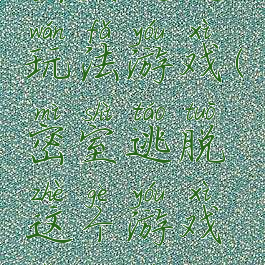 wán fǎ yóu xì
玩法游戏(
mì shì táo tuō
密室逃脱
zhè gè yóu xì
这个游戏